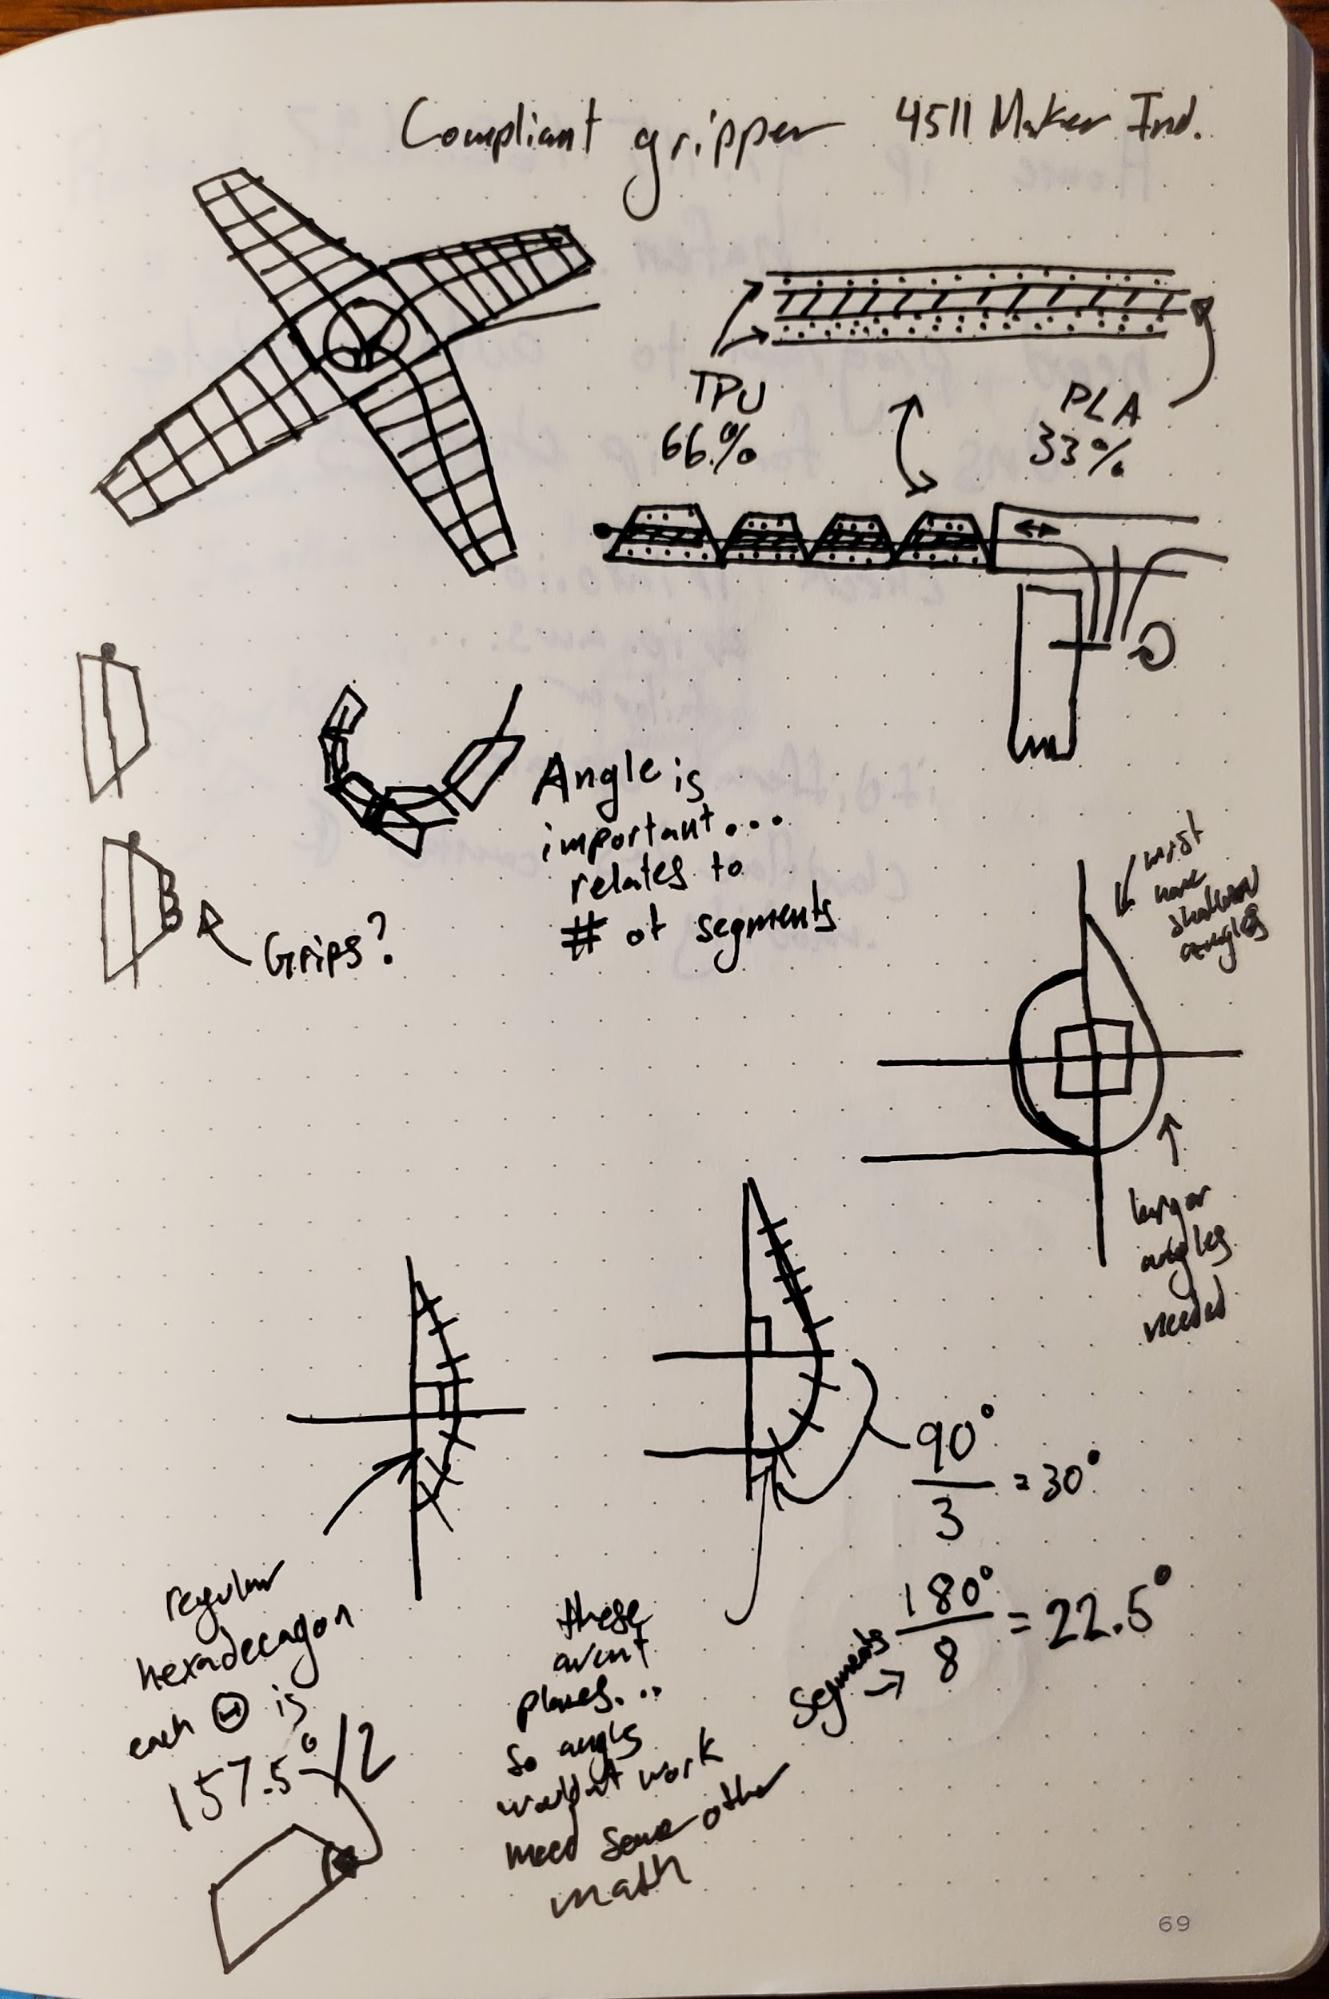 Compliant gripper 4511 Maker Ind.
TPU
66%
PLA
33%
Angle is
important...
relates to
# of segments
Grips?
must
have
shallower
angles
larger
angles
needed
90°
3
=30°
180°
8
= 22.5°
segments →
regular
hexadecagon
each Θ is
157.5°/2
these
arent
planes...
so angles
wouldn't work
need some other
math
69